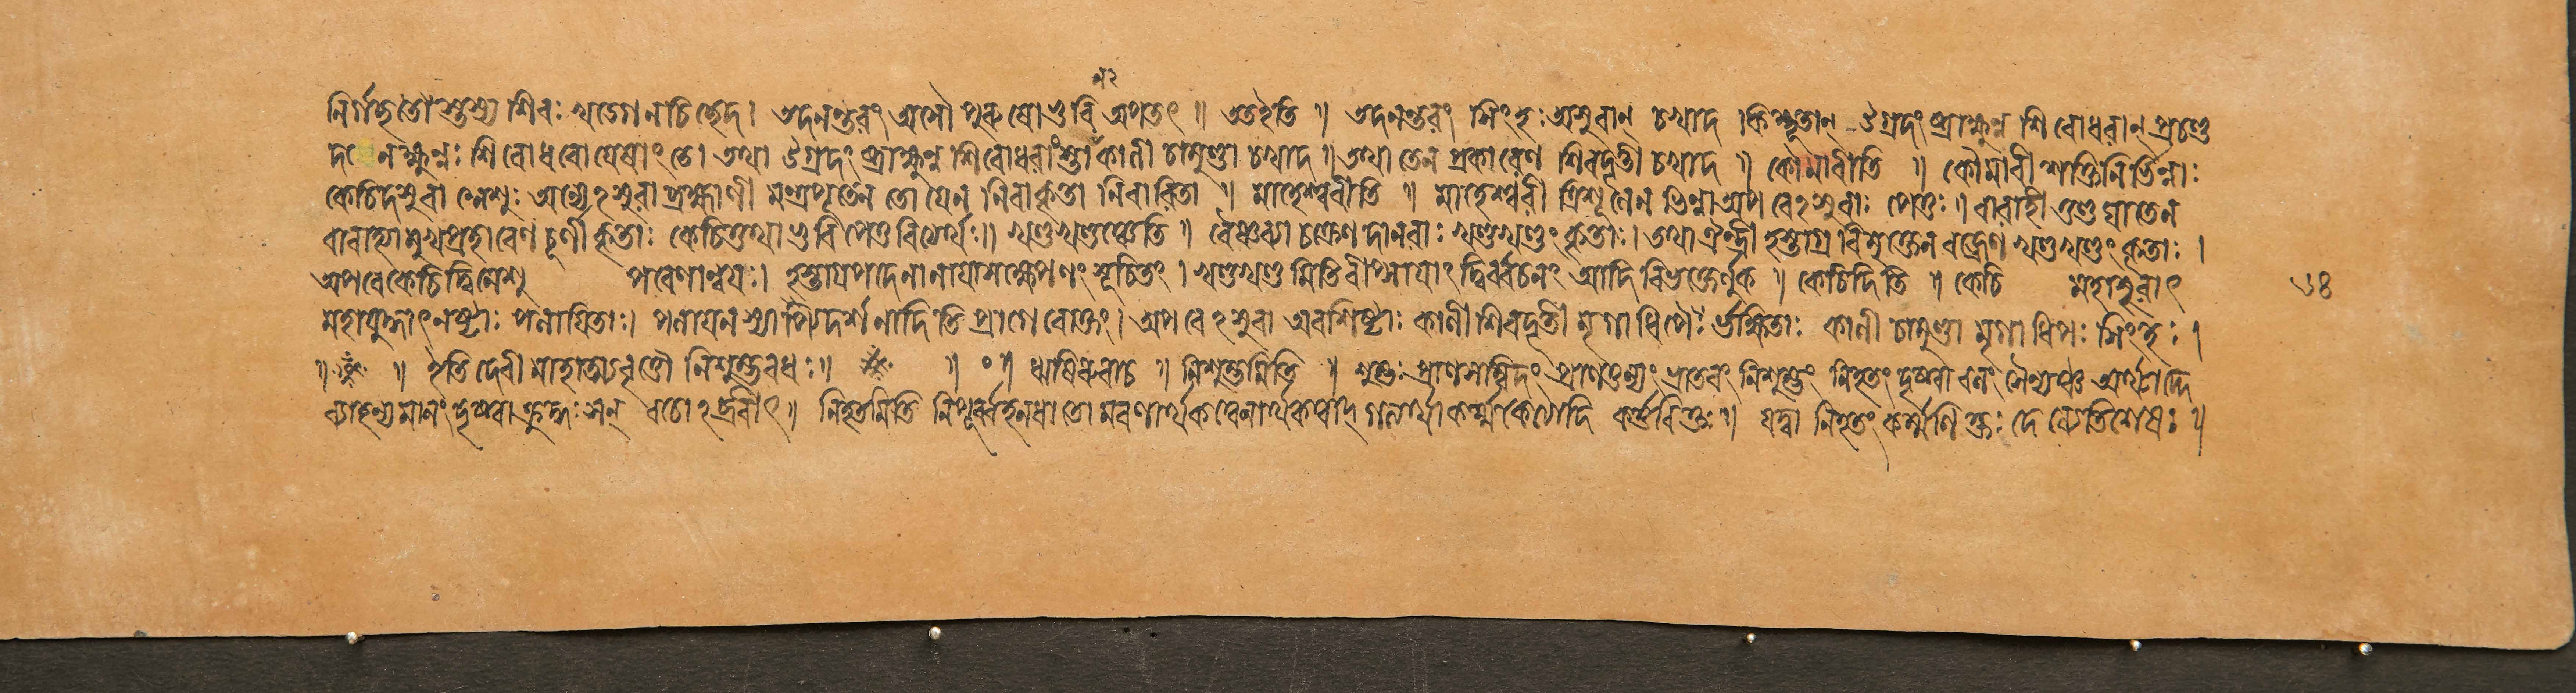 ন২
নির্গচ্ছতো শুম্ভস্য শিরঃ খড্গেন চিচ্ছেদ। তদনন্তরং অসৌ পুরুষো ভুবি অপতৎ ॥ তত ইতি ॥ তদনন্তরং সিংহঃ অসুরান্ চখাদ । কিম্ভূতান্ উগ্রদংষ্ট্রাক্ষুন্ন শিরোধরান্ প্রচণ্ড
দ নক্ষুন্নঃ শিরোধরো যেষাং তে। তথা উগ্রদংষ্ট্রাক্ষুন্ন শিরোধরাংস্তাঁ কালী চামুণ্ডা চখাদ ॥ তথা তেন প্রকারেণ শিবদূতী চখাদ ॥ কৌমারীতি ॥ কৌমারী শক্তিনির্ভিন্নাঃ
কেচিদসুরা নেশুঃ অন্যেঽসুরা ব্রহ্মাণী মন্ত্রপূতেন তোয়েন নিরাকৃতা নিবারিতা ॥ মাহেশ্বরীতি ॥ মাহেশ্বরী ত্রিশূলেন ভিন্না অপরেঽসুরাঃ পেতুঃ ॥ বারাহী তুণ্ড ঘাতেন
বারাহ্যা মুখপ্রহারেণ চূর্ণীকৃতাঃ কেচিত্তথা ভুবি পেতুরিত্যর্থঃ॥ খণ্ডখণ্ডঞ্চেতি ॥ বৈষ্ণব্যা চক্রেণ দানবাঃ খণ্ডখণ্ডং কৃতাঃ। তথা ঐন্দ্রী হস্তাগ্র বিমুক্তেন বজ্রেণ খণ্ডখণ্ডং কৃতাঃ ।
অপরে কেচিদ্বিনেশু পরেণান্বয়ঃ। হস্তাগ্রপদেনানায়াসক্ষেপণং সূচিতং । খণ্ডখণ্ড মিতি বীপ্সায়াং দ্বির্ব্বচনং আদি বিভক্তের্লুক ॥ কেচিদিতি ॥ কেচি মহাসুরাৎ ৬৪
মহাযুদ্ধাৎ নষ্টাঃ পলায়িতাঃ। পলায়ন স্যাপ্যদর্শনাদিতি প্রাগেবোক্তং। অপরেঽসুরা অবশিষ্টাঃ কালী শিবদূতী মৃগাধিপৈঃ র্ভক্ষিতাঃ কালী চামুণ্ডা মৃগাধিপঃ সিংহঃ ।
॥ ॥ ইতি দেবী মাহাত্ম্যবৃত্তৌ নিশুম্ভবধঃ॥ ॥ ০ ॥ ঋষিরুবাচ ॥ নিশুম্ভমিতি ॥ শুম্ভঃ প্রাণসম্মিতং প্রাণতুল্যং ভ্রাতরং নিশুম্ভং নিহতং দৃষ্ট্বা বলং সৈন্যঞ্চ অর্থাদ্দে
ব্যাহন্যমানং দৃষ্ট্বা ক্রুদ্ধঃ সন্ বচোঽব্রবীৎ॥ নিহতমিতি নিপূর্ব্বহনধাতো মরণার্থকত্বেনার্থকত্বাৎ কর্ম্মকেত্যাদি কর্ত্তরি ক্তঃ॥ যদ্বা নিহতং কর্ম্মণি ক্তঃ দেব্যেতিশেষঃ ॥